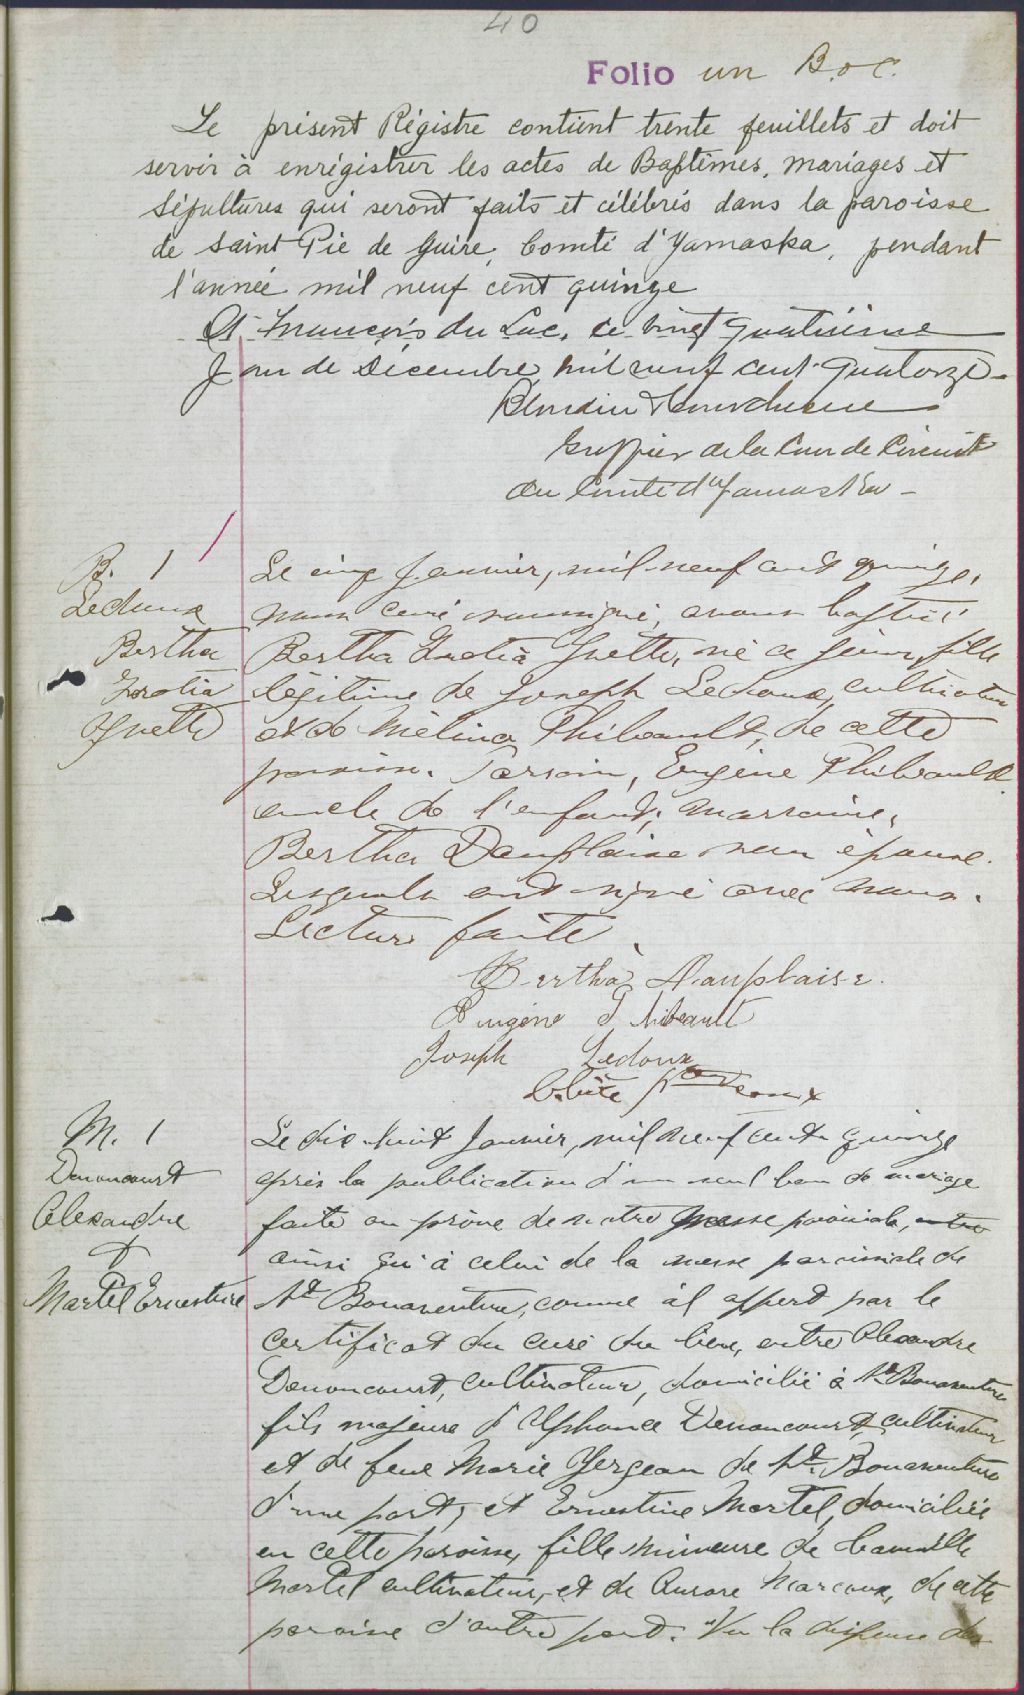 40
Folio un B. & C.
Le présent Régistre contient trente feuillets et doit
servir à enrégistrer les actes de Baptêmes, mariages et
Sépultures qui seront faits et célébrés dans la paroisse
de Saint Pie de Guire, Comté d'Yamaska, pendant
l'année mil neuf cent quinze
St François du Lac, ce vingt quatrième
Jour de Décembre mil neuf cent quatorze
Blondin &
Greffier de la Cour de Circuit
du Comté d'Yamaska -
B. 1
Ledoux
Bertha
Yvette
Le cinq Janvier, mil neuf cent quinze,
nous curé soussigné, avons baptisé
Bertha Yvette, né ce jour, fille
légitime de Joseph Ledoux, cultivateur
et de Mélina Thibeault, de cette
paroisse. Parrain, Eugène Thibeault
oncle de l'enfant; marraine,
Bertha Dauplaise son épouse.
Lesquels ont signé avec nous.
Lecture faite
Bertha Dauplaise.
Eugène Thibeault
Joseph Ledoux
ptre
M. 1
Denoncourt
Alexandre
&
Martel Ernestine
Le dix-huit Janvier, mil neuf cent quinze
après la publication d'un seul ban de mariage
faite au prône de notre messe paroissiale, entre
ainsi qu'à celui de la messe paroissiale de
St Bonaventure, comme il appert par le
certificat du curé du lieu, entre Alexandre
Denoncourt, cultivateur, domicilié à St Bonaventure
fils majeure d'Alphonse Denoncourt, cultivateur
et de feue Marie Yergeau de St. Bonaventure
d'une part, et Ernestine Martel, domiciliée
en cette paroisse, fille mineure de Camille
Martel cultivateur, et de Aurore Marcoux, de cette
paroisse d'autre part. Vu la dispense de